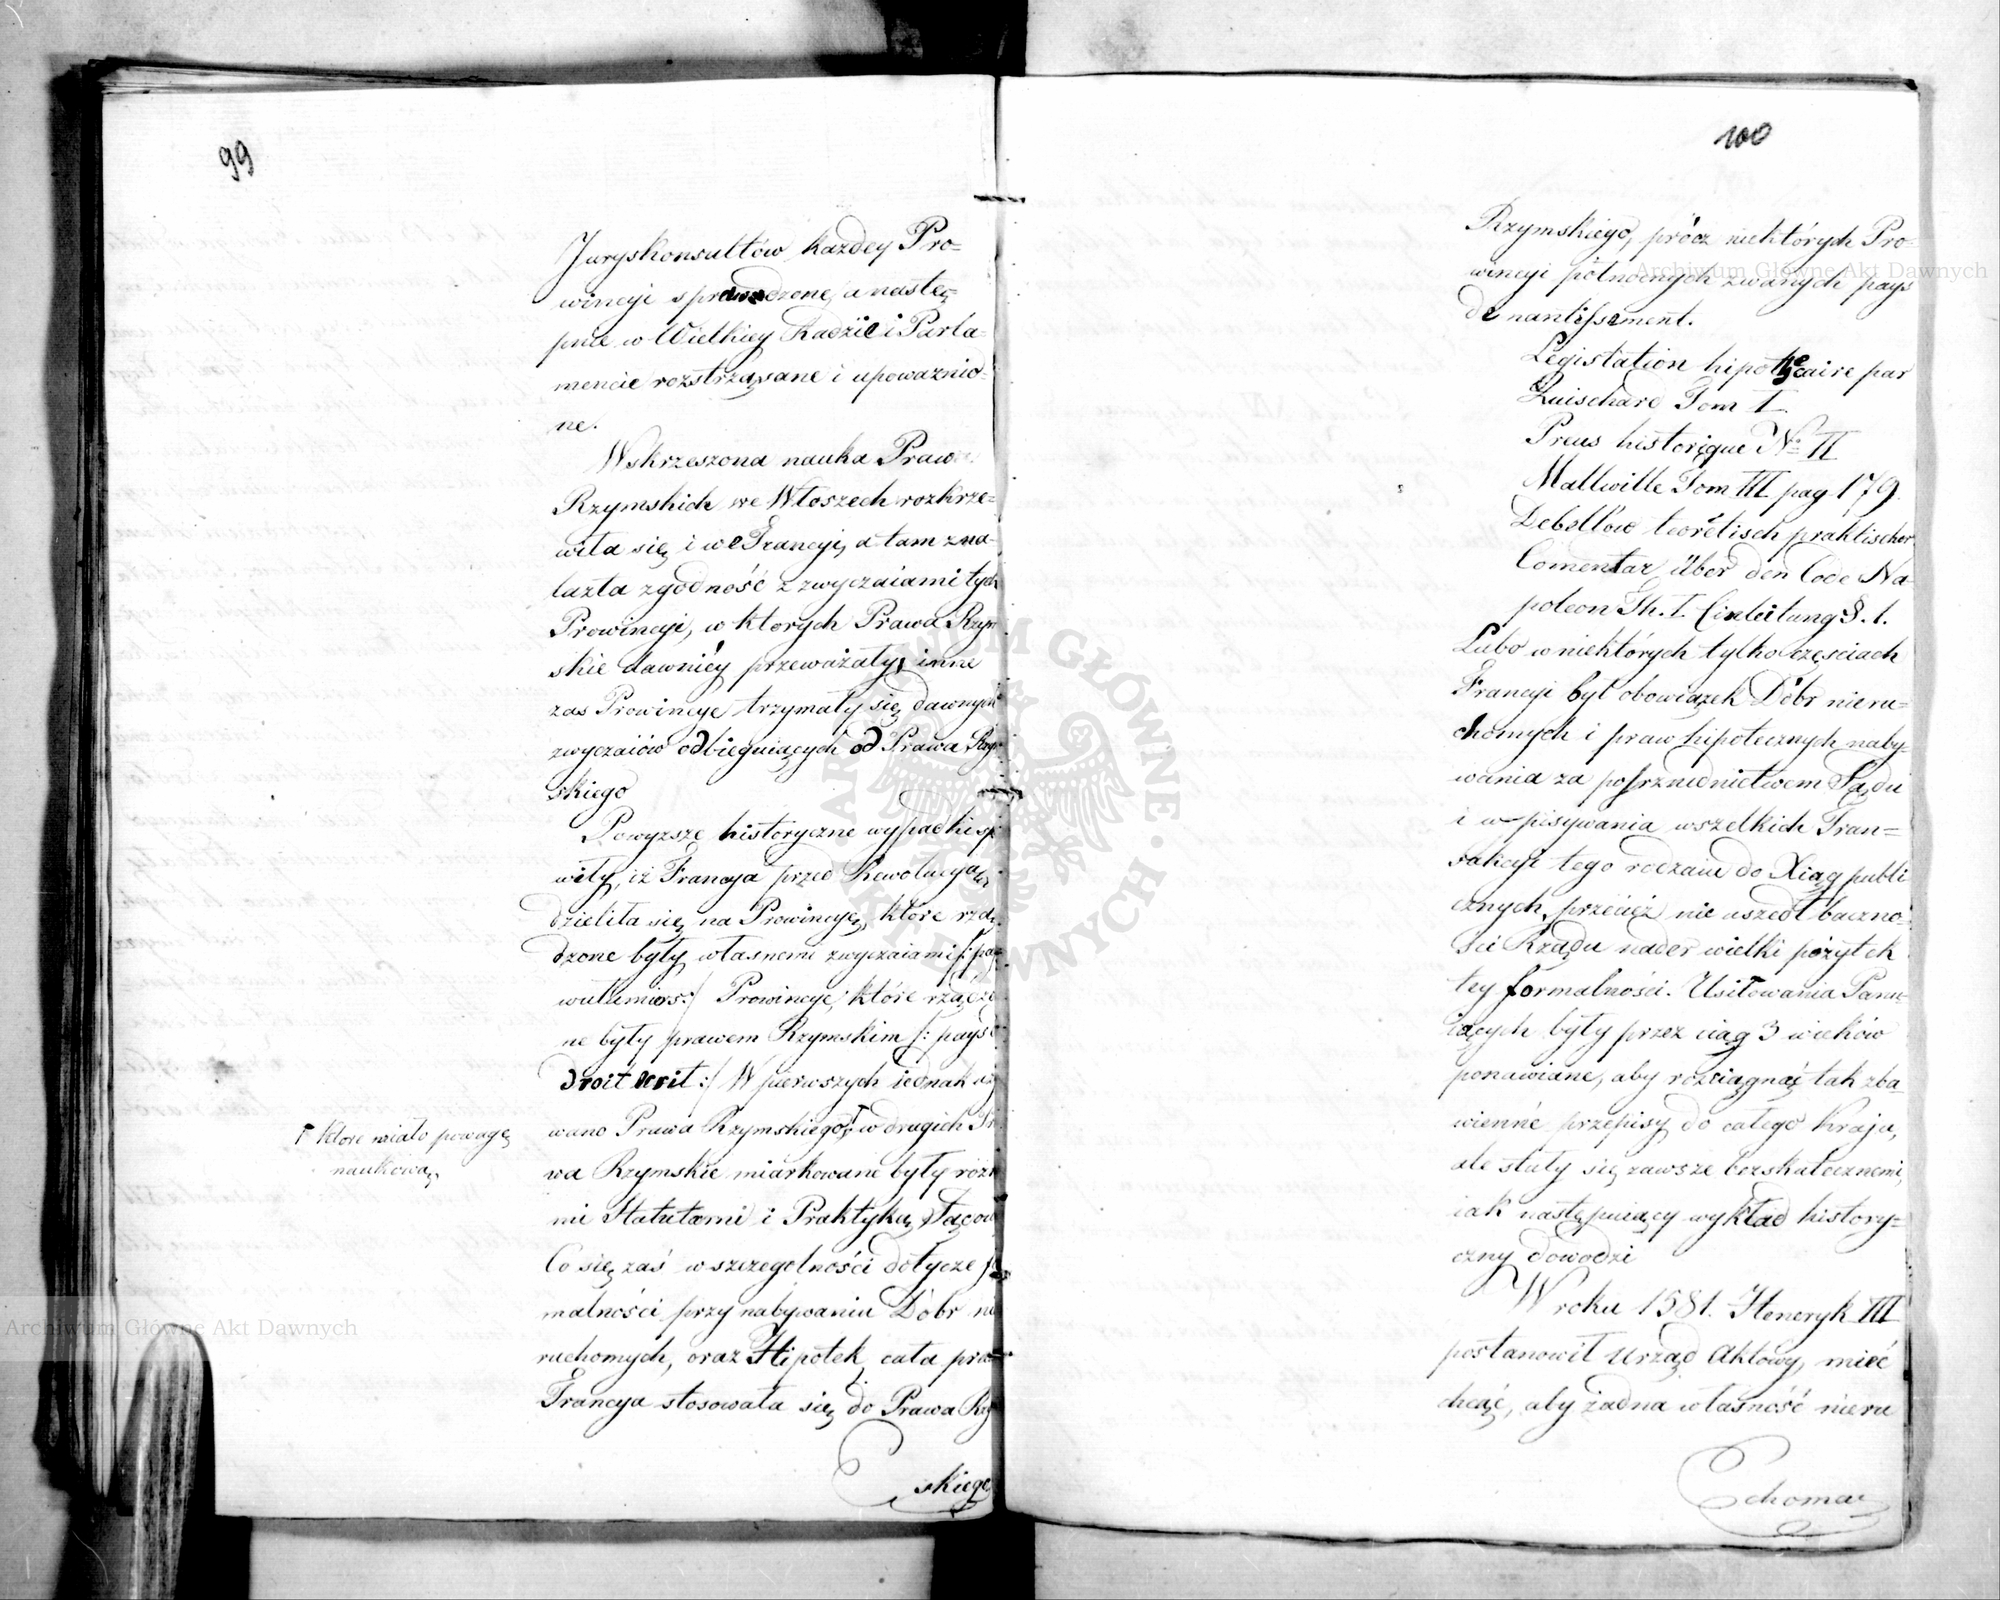 99
Juryskonsultów każdey Pro-
wincyi sprawdzone, a nastę-
pnie w Wielkiey Radzie i Parla-
mencie rozstrząsane i upoważnio-
ne.
Wskrzeszona nauka Prawa
Rzymskich we Włoszech rozkrze-
wiła się i we Francyi, a tam zna-
lazła zgodność z zwyczaiami tych
Prowincyi, w ktorych Prawa Rzym
skie dawniéy przeważały, inne
zas Prowincye trzymały się dawnych
zwyczaiów odbiegaiących od Prawa Rzym
skiego
Powyższe historyczne wypadki
wiły, iż Francya przed Rewolucyą
dzieliła się na Prowincye, które rzą
dzone były własnemi zwyczaiami /: pay
/ Prowincye, które rządzo
ne były prawem Rzymskim /: pays
droit ecrit :/ W pierwszych iednak uży
wano Prawa Rzymskiego, w drugich Pra
wa Rzymskie miarkowane były rożne
mi Statutami i Praktyką Sądow
Co się zaś w szczegolności dotycze fo
malności przy nabywaniu Dobr nie
ruchomych, oraz Hipotek, cała prawie
Francya stosowała się do Prawa Rzy
skiego
które miało powagę
naukową
100
Rzymskiego, prócz niektórych Pro-
wincyi północnych zwanych pays
de nantissement.
Legislation hipothecaire par
Guischard Tom I
Preus historique No II
Mallwille Tom III pag 179.
Debellow teoretisch praktischer
Comentar über den Code Na
poleon Th. I. Einleitung §. 1.
Lubo w niektórych tylko częsciach
Francyi był obowiązek Dóbr nieru-
chomych i praw hipotecznych naby-
wania za posrzednictwem Sądu
i wpisywania wszelkich Tran-
sakcyi tego rodzaiu do Xiąg publi
cznych, przecież nie uszedł baczno-
ści Rządu nader wielki pożytek
tey formalności. Usiłowania Panu-
iących były przez ciąg 3 wieków
ponawiane, aby rozciągnąć tak zba
wienne przepisy do całego Kraju,
ale stały się zawsze bezskutecznemi,
iak następuiący wykład history-
czny dowodzi
W roku 1581. Henryk III
postanowił Urząd Aktowy, mieć
chcąc, aby żadna własność nieru
choma
Archiwum Główne Akt Dawnych
Archiwum Główne Akt Dawnych
ARCHIWUM GŁÓWNE AKT DAWNYCH